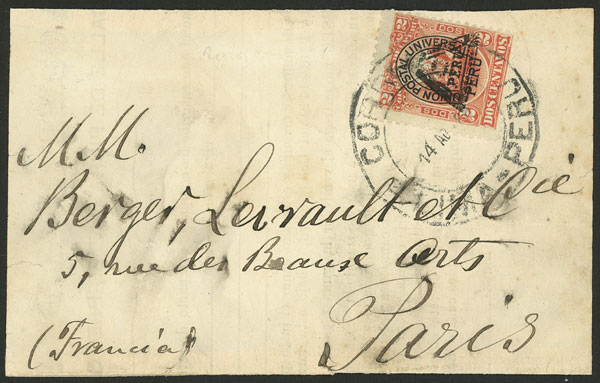 DOS CENTAVOS
UNION POSTAL UNIVERSAL
PERU
PERU
CORREO LIMA - PERU
14
MM.
Berger, Levrault et Cie
5, rue des Beaux Arts
Paris
(Francia)